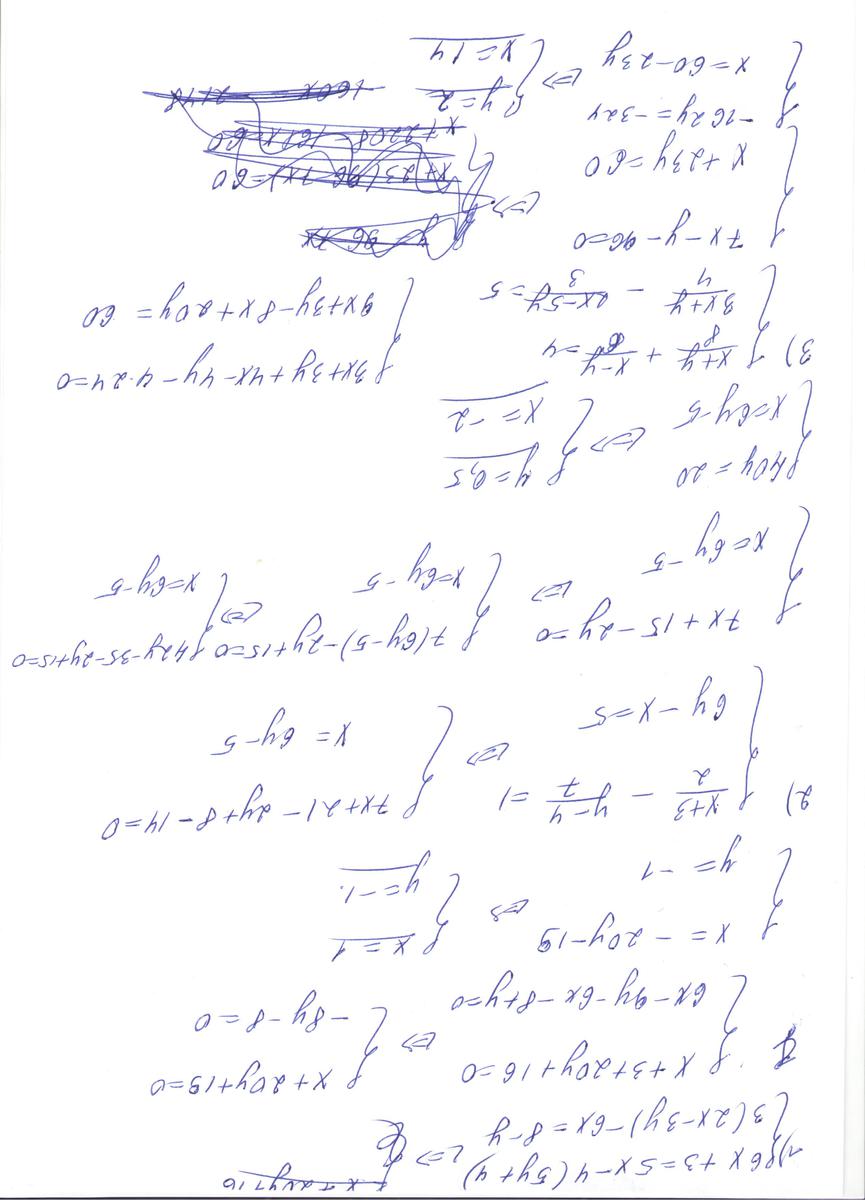 1) { 6x+3=5x-4(5y+4) ⇔
3(2x-3y)-6x=8-y
{ x+3+20y+16=0 ⇔ { x+20y+19=0
6x-9y-6x-8+y=0 -8y-8=0
{ x=-20y-19 ⇔ { x=1
y=-1 y=-1.
2) { (x+3)/2 - (y-4)/7 =1 ⇔ { 7x+21-2y+8-14=0
6y-x=5 x=6y-5
{ 7x+15-2y=0 ⇔ { 7(6y-5)-2y+15=0 ⇔ { 42y-35-2y+15=0
x=6y-5 x=6y-5 x=6y-5
{ 40y=20 ⇔ { y=0,5
x=6y-5 x=-2
3) { (x+y)/8 + (x-y)/6 =4 { 3x+3y+4x-4y-4·24=0
(3x+y)/4 - (2x-5y)/3 =5 9x+3y-8x+20y=60
{ 7x-y-96=0 ⇔ { y=96-7x
x+23y=60 x+23(96-7x)=60
x+2208-161x=60
{ -162y=-324 ⇔ { y=2
x=60-23y x=14